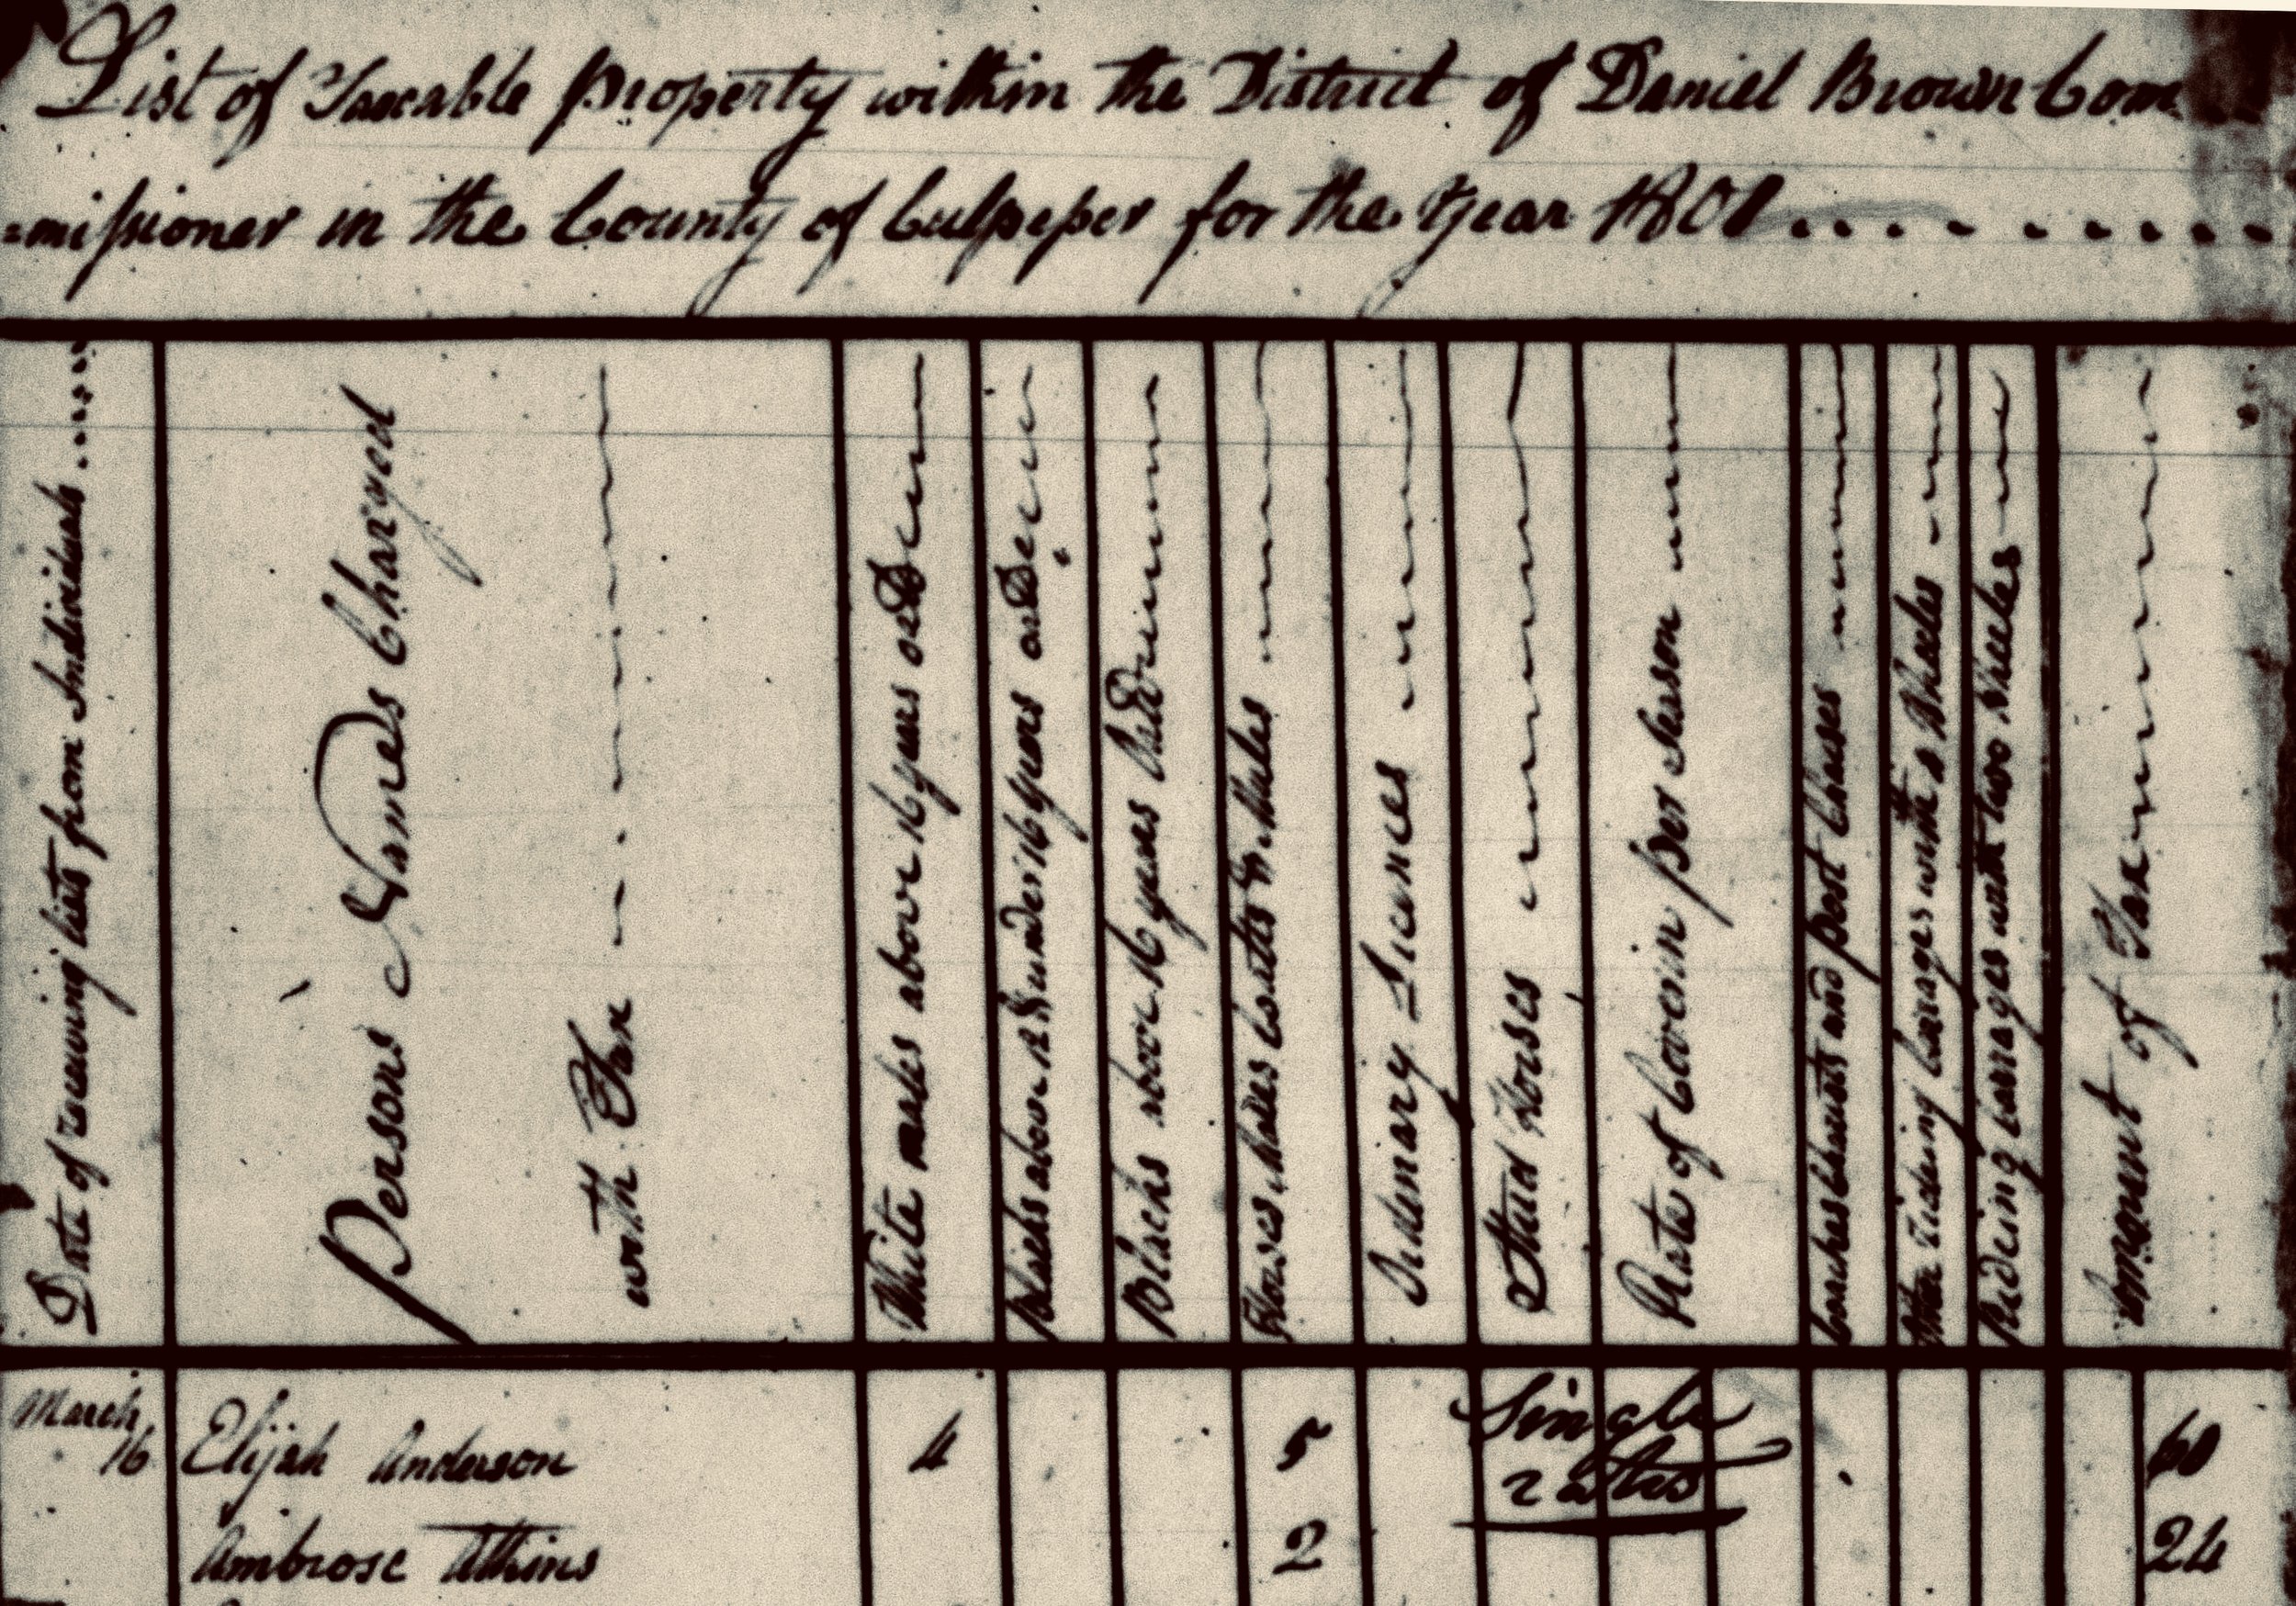 List of Taxable Property within the District of Daniel Brown Com
=missioner in the County of Culpeper for the Year 1801..........
Date of receiving lists from Individuals.....
Persons Names Charged
with Tax
White males above 16 years old
Blacks above 12 & under 16 years old
Blacks above 16 years old
Horses Mares Colts & Mules
Ordinary Licences
Stud Horses
Rate of Covering per Season
Coaches Chariots and post Chaises
Other riding Carrages with 4 Wheels
Rideing Carrages with two Wheels
Amount of Tax
March
16 Elijah Anderson 4 5 Single 60
rates
Ambrose Atkins 2 24